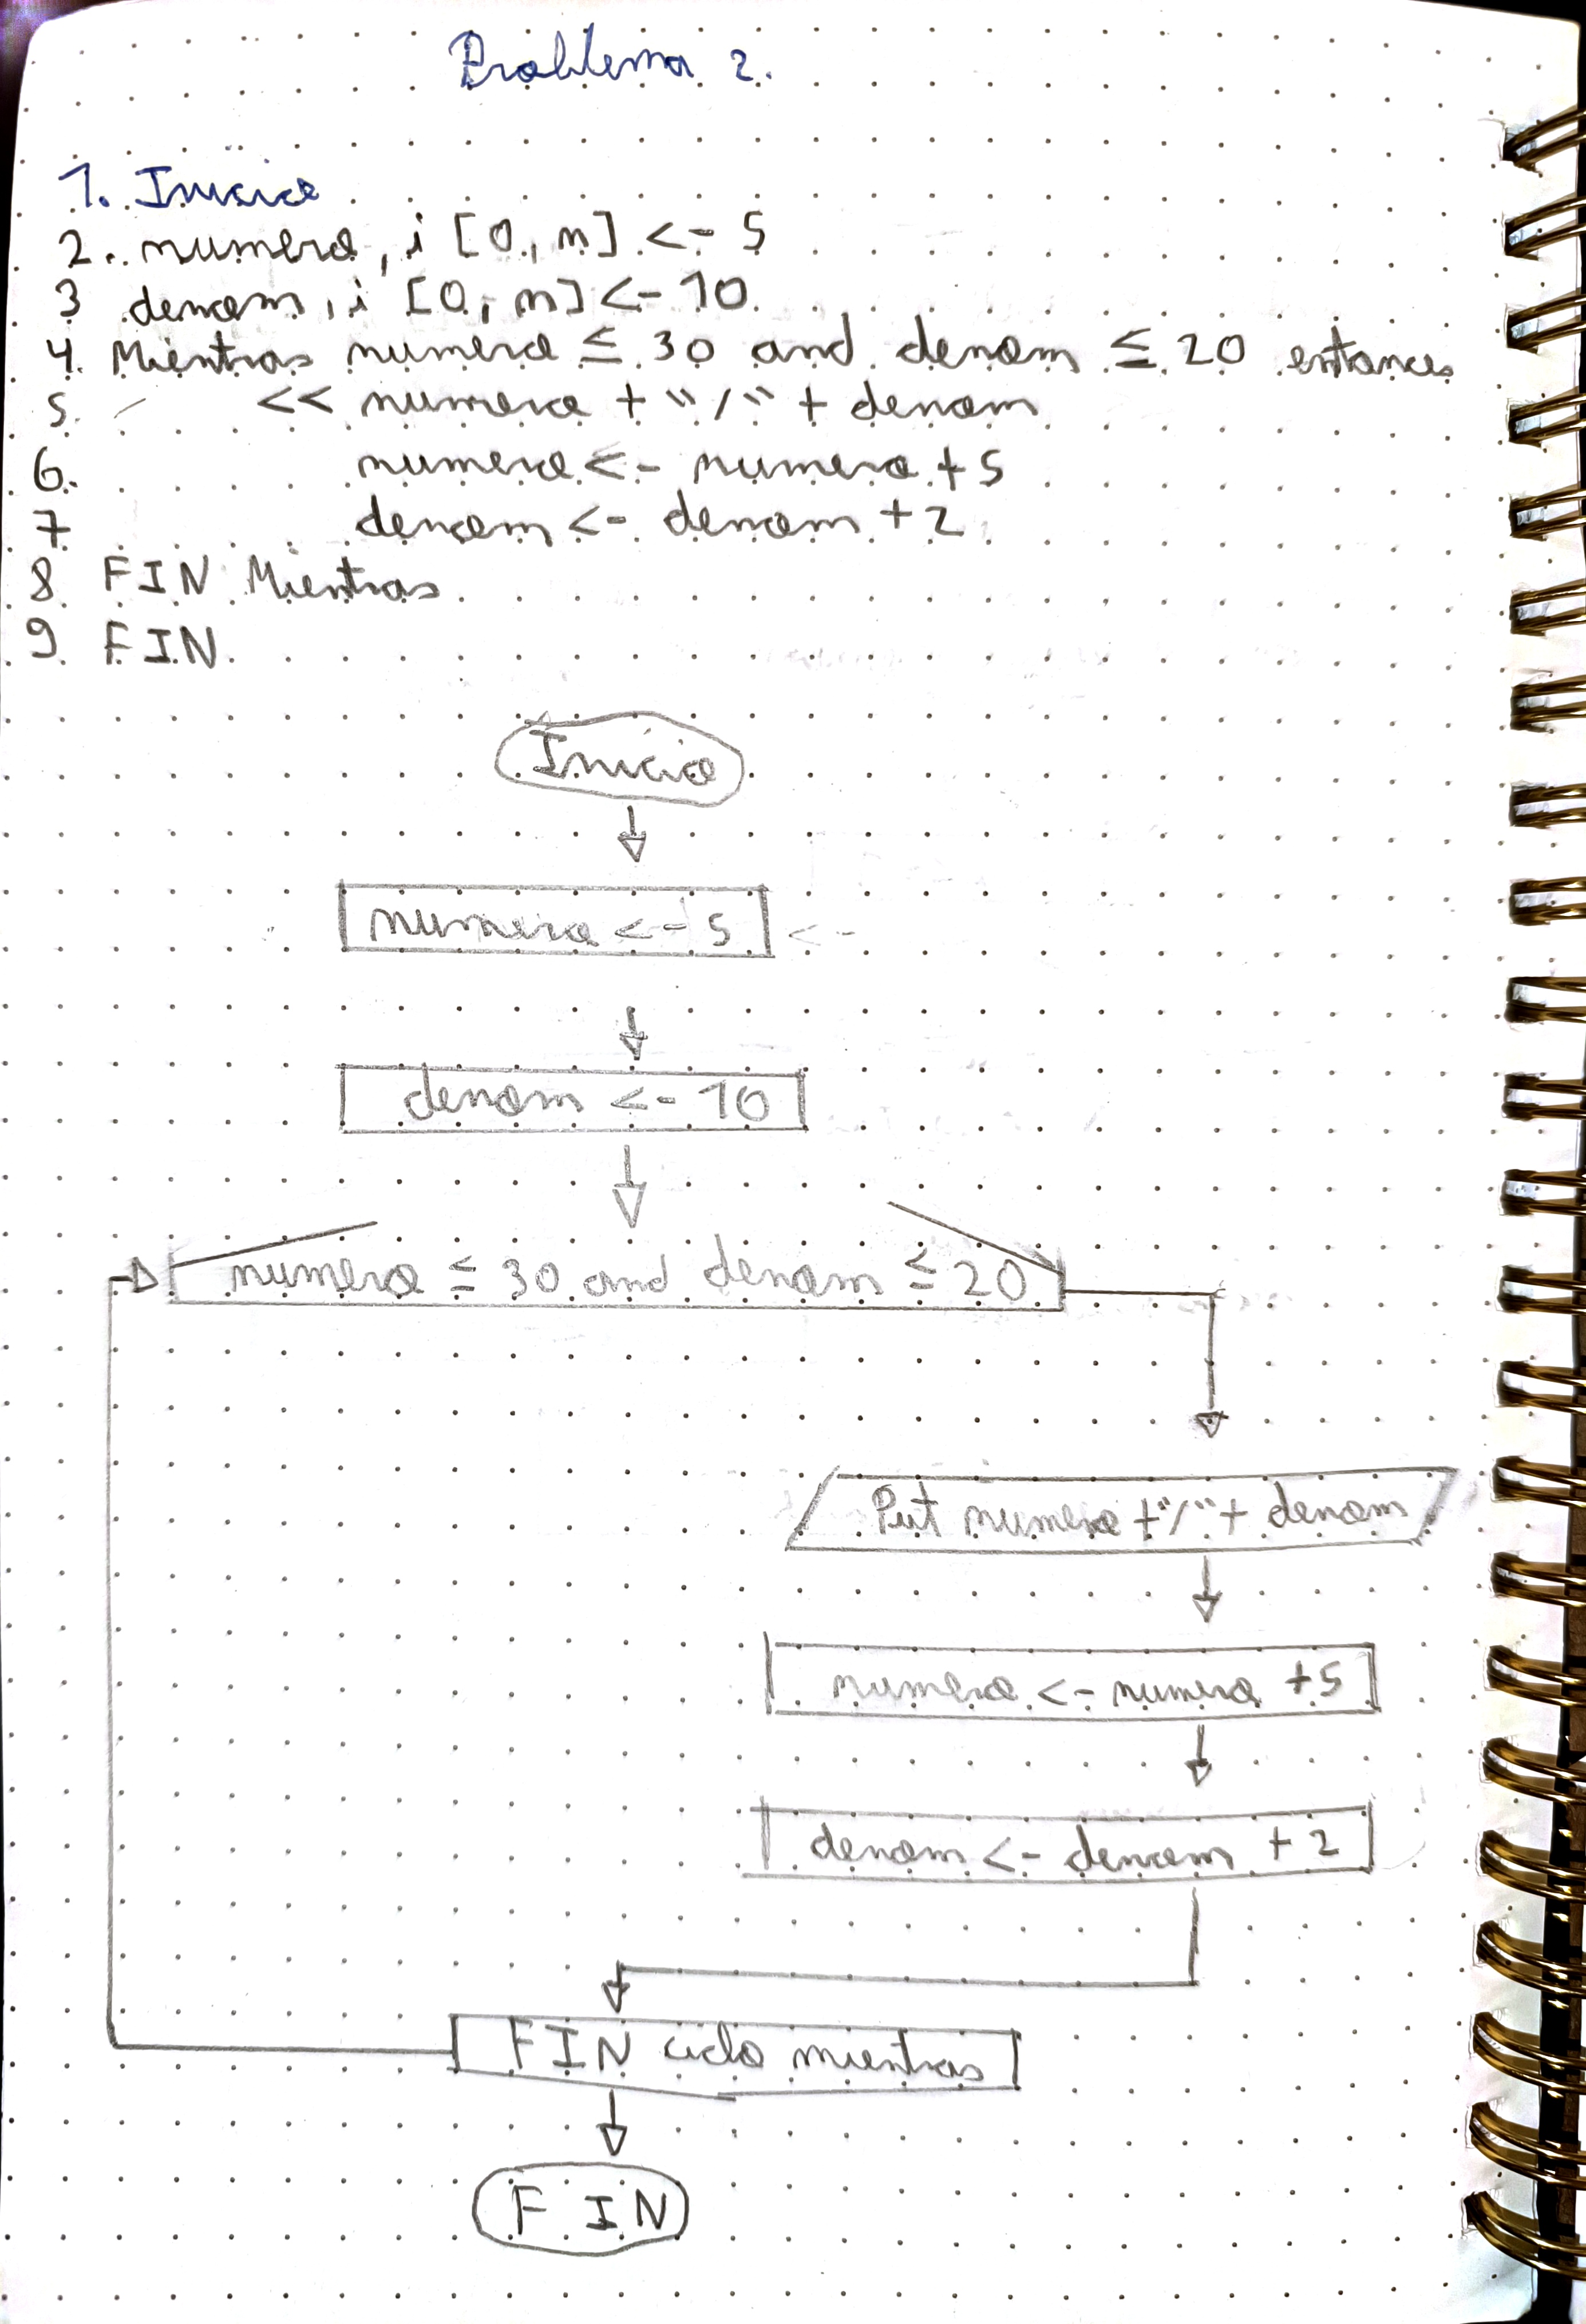 Problema 2.
1. Inicio
2. numero, i [0, n] <- 5
3 denom, i [0, n] <- 10
4. Mientras numero ≤ 30 and denom ≤ 20 entonces
5. << numero + "/" + denom
6. numero <- numero + 5
7 denom <- denom + 2
8 FIN Mientras
9 FIN
Inicio
numero <- 5 <-
denom <- 10
numero ≤ 30 and denom ≤ 20
Put numero + "/" + denom
numero <- numero + 5
denom <- denom + 2
FIN ciclo mientras
FIN